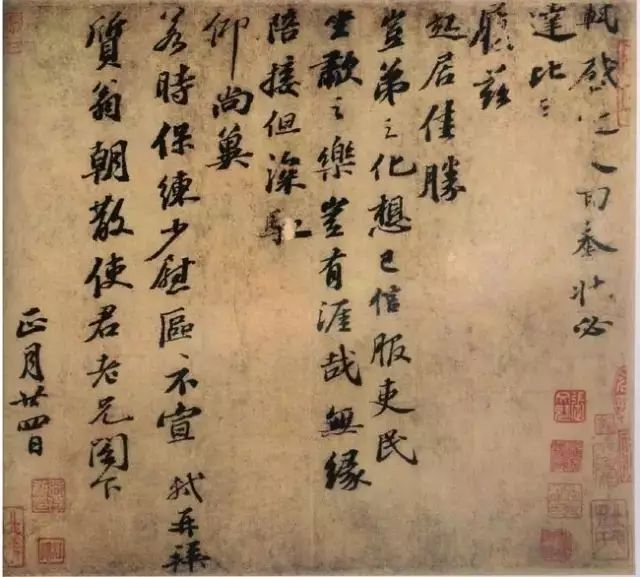 軾啓近人回奉狀必
達比日
履茲
起居佳勝
豈弟之化想已信服吏民
坐歗之樂豈有涯哉無緣
陪接但深馳
仰尚冀
若時保練少慰區區不宣 軾再拜
質翁朝散使君老兄閣下
正月廿四日